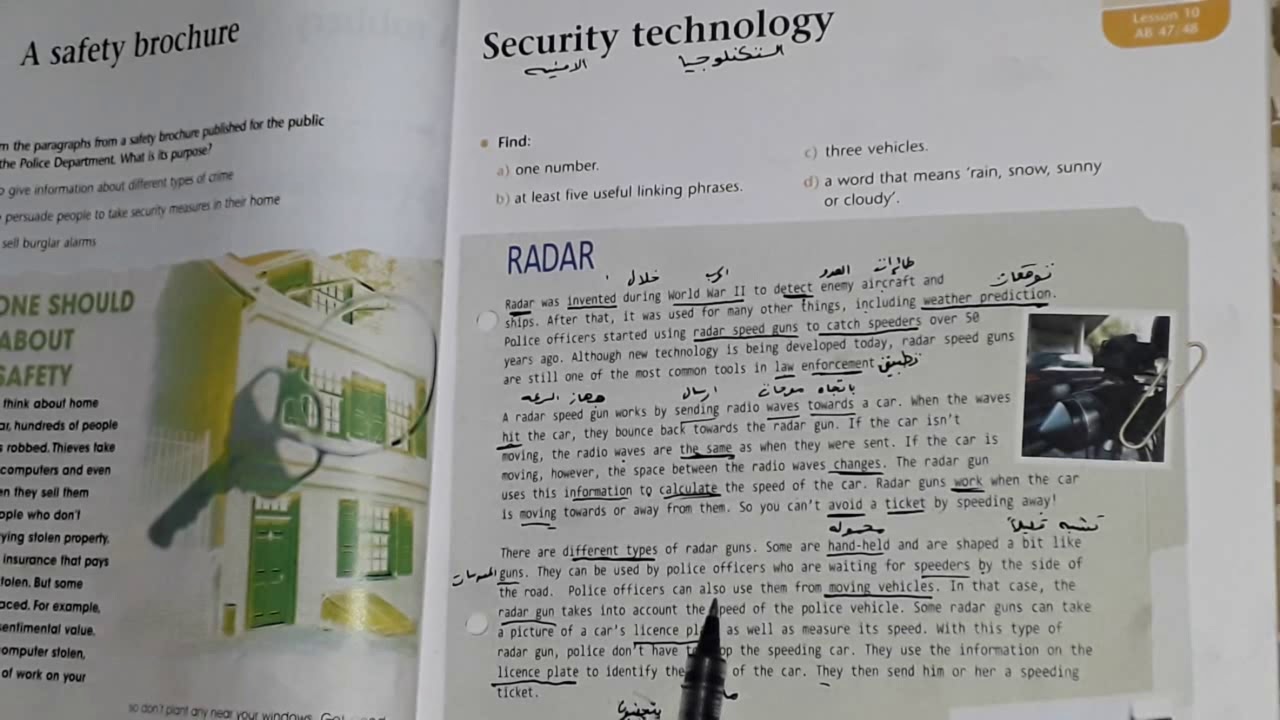 A safety brochure
m the paragraphs from a safety brochure published for the public
the Police Department. What is its purpose?
o give information about different types of crime
persuade people to take security measures in their home
sell burglar alarms
ONE SHOULD
ABOUT
SAFETY
think about home
ar, hundreds of people
s robbed. Thieves take
computers and even
en they sell them
ople who don't
ying stolen property.
insurance that pays
tolen. But some
aced. For example,
sentimental value.
omputer stolen,
of work on your
so don't plant any near your windows.
Security technology
الامنيه التكنلوجيا
Lesson 10
AB 47/48
Find:
a) one number.
b) at least five useful linking phrases.
c) three vehicles.
d) a word that means 'rain, snow, sunny
or cloudy'.
RADAR
خلال العدو طائرات توقعات
Radar was invented during World War II to detect enemy aircraft and
ships. After that, it was used for many other things, including weather prediction.
Police officers started using radar speed guns to catch speeders over 50
years ago. Although new technology is being developed today, radar speed guns
are still one of the most common tools in law enforcement تطبيق
ارسال موجات باتجاه
A radar speed gun works by sending radio waves towards a car. When the waves
hit the car, they bounce back towards the radar gun. If the car isn't
moving, the radio waves are the same as when they were sent. If the car is
moving, however, the space between the radio waves changes. The radar gun
uses this information to calculate the speed of the car. Radar guns work when the car
is moving towards or away from them. So you can't avoid a ticket by speeding away!
محموله تشبه قليلاً
There are different types of radar guns. Some are hand-held and are shaped a bit like
guns. They can be used by police officers who are waiting for speeders by the side of
the road. Police officers can also use them from moving vehicles. In that case, the
radar gun takes into account the speed of the police vehicle. Some radar guns can take
a picture of a car's licence as well as measure its speed. With this type of
radar gun, police don't have the speeding car. They use the information on the
licence plate to identify the of the car. They then send him or her a speeding
ticket.